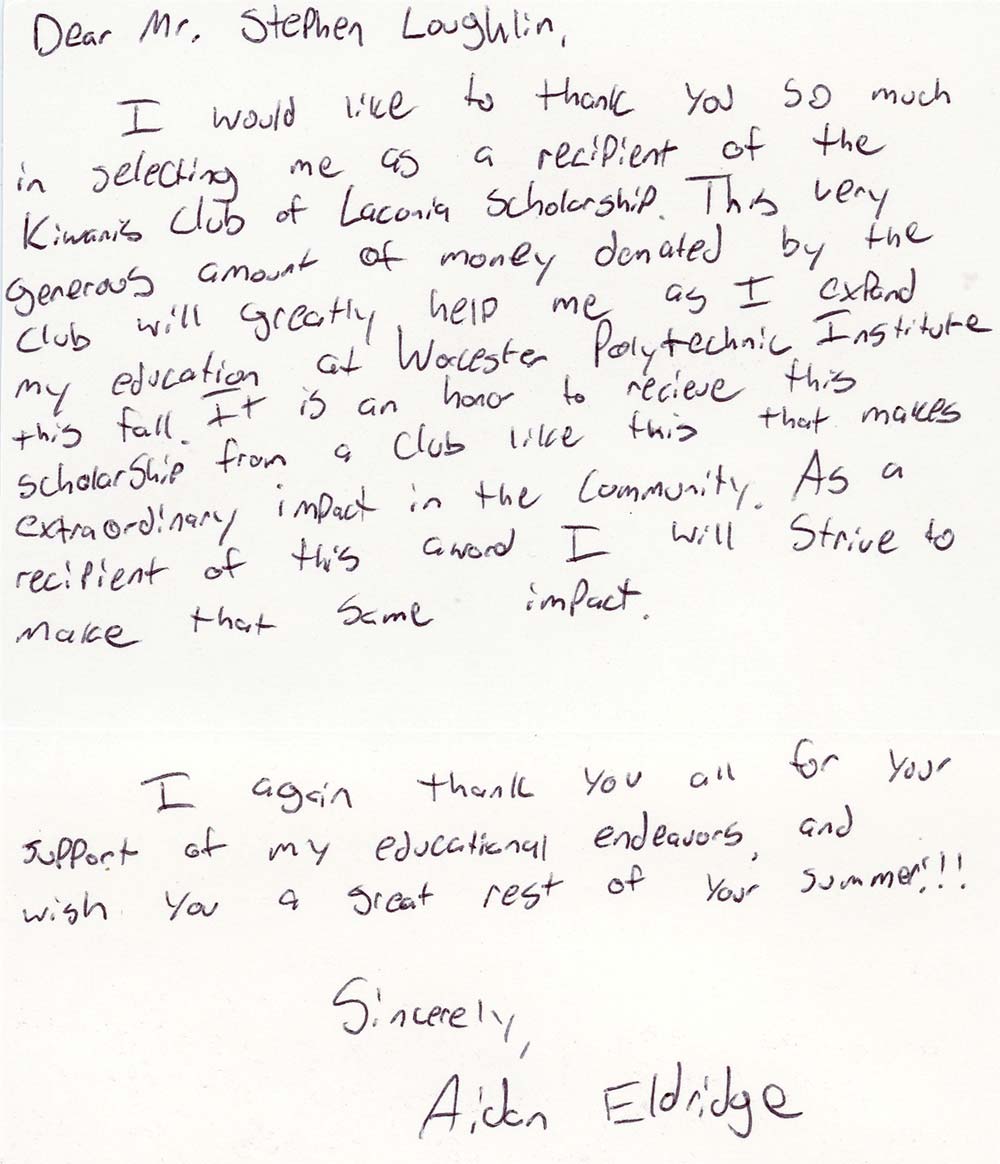 Dear Mr. Stephen Loughlin,
I would like to thank you so much
in selecting me as a recipient of the
Kiwanis Club of Laconia Scholarship. This very
generous amount of money donated by the
Club will greatly help me as I expand
my education at Worcester Polytechnic Institute
this fall. It is an honor to recieve this
scholarship from a Club like this that makes
extraordinary impact in the Community. As a
recipient of this award I will Strive to
make that same impact.
I again thank you all for your
support of my educational endeavors, and
wish you a great rest of your summer!!!
Sincerely,
Aidan Eldridge